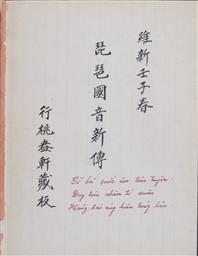 維新壬子春
琵琶國音新傳
行桃盎軒藏板
Tì bà quốc âm tân truyện.
Duy tân nhâm tí xuân
Hàng đào áng hiên tàng bản.